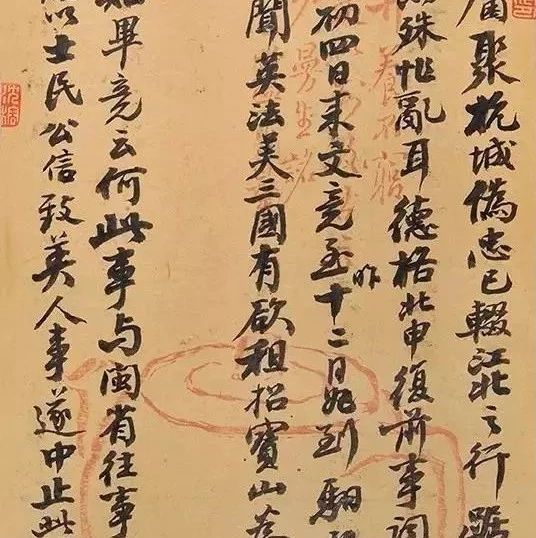 聚杭城偽忠已輟江北之行
殊亂耳德格北申復前事詞
初四日來文竟至昨十二日始到
聞英法美三國有欲租招寶山
畢竟云何此事与閩省往事
以士民公信致美人事遂中止此
養不窮
曼生